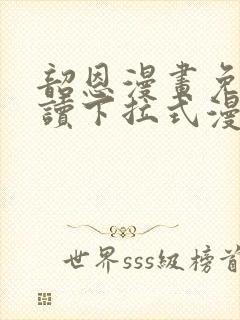 韶恩漫畫免
讀下拉式漫
世界sss級榜首